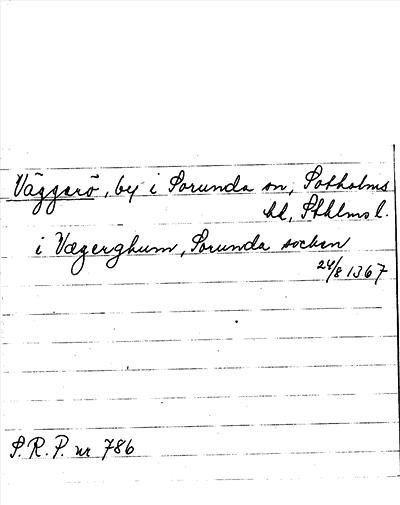 Väggarö, by i Sorunda sn, Sotholms
hd, Sthlms l.
i Vægerghum, Sorunda socken
24/8 1367
S.R.P. nr 786